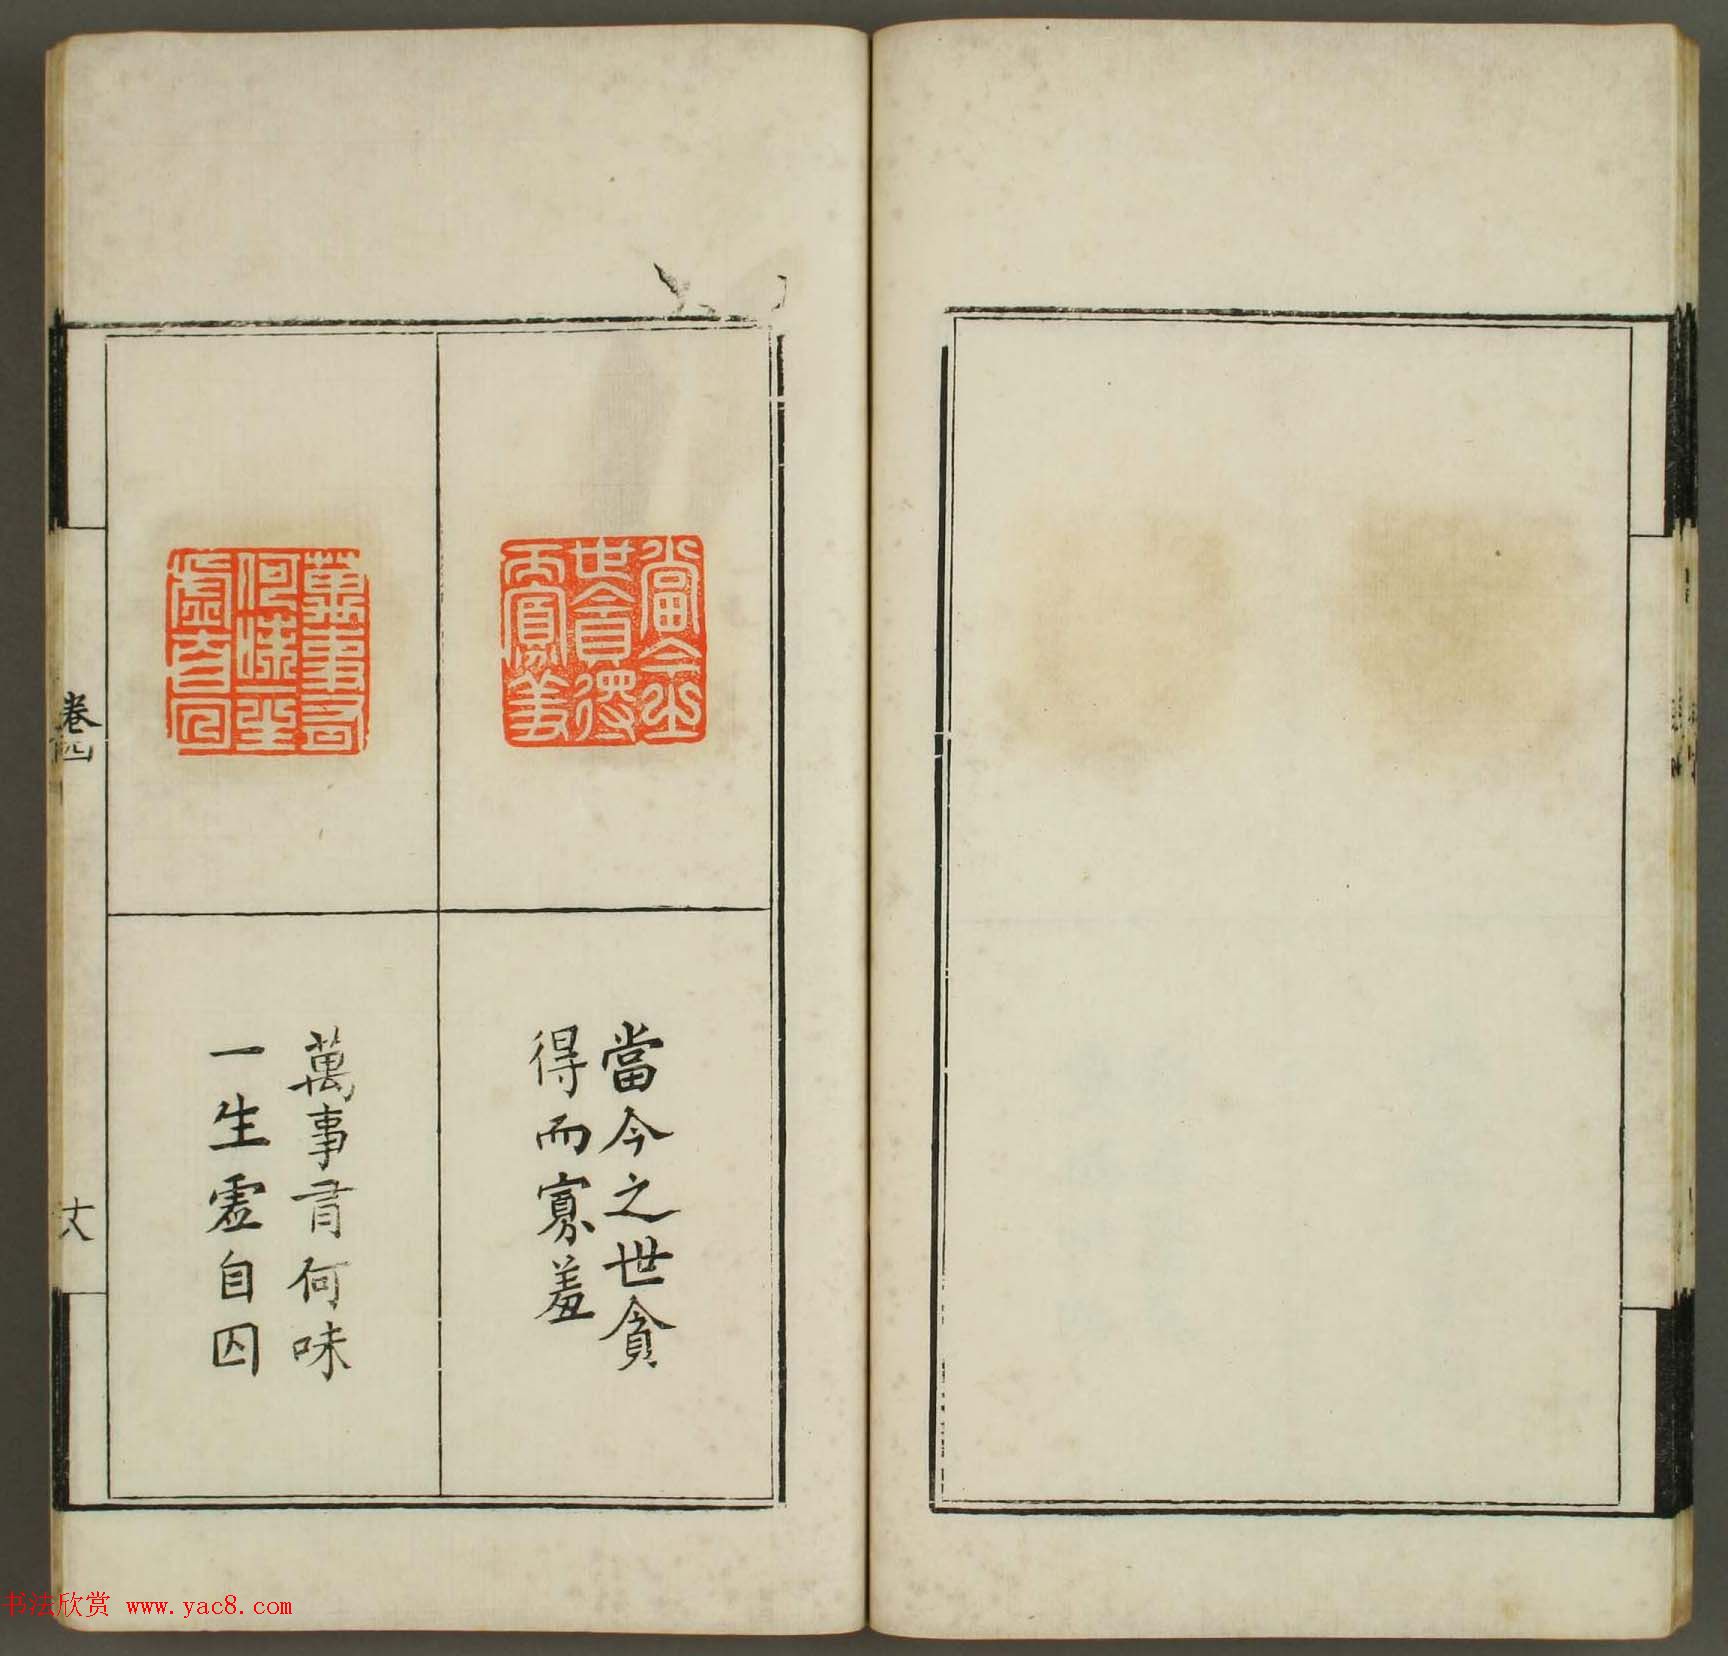 當今之
世貪得
而寡羞
當今之世貪
得而寡羞
萬事有
何味一生
虛自囚
萬事有何味
一生虛自囚
卷四
书法欣赏 www.yac8.com